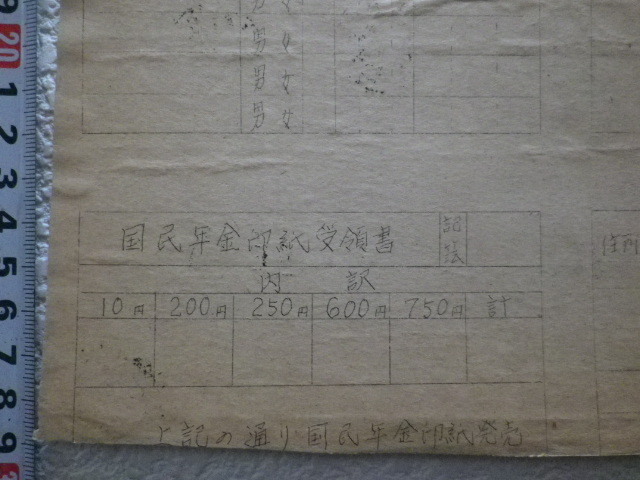 男女
男女
男女
男女
国民年金印紙受領書 記張
内訳
10円 200円 250円 600円 750円 計
上記の通り国民年金印紙発売
住所
9 20 1 2 3 4 5 6 7 8 9